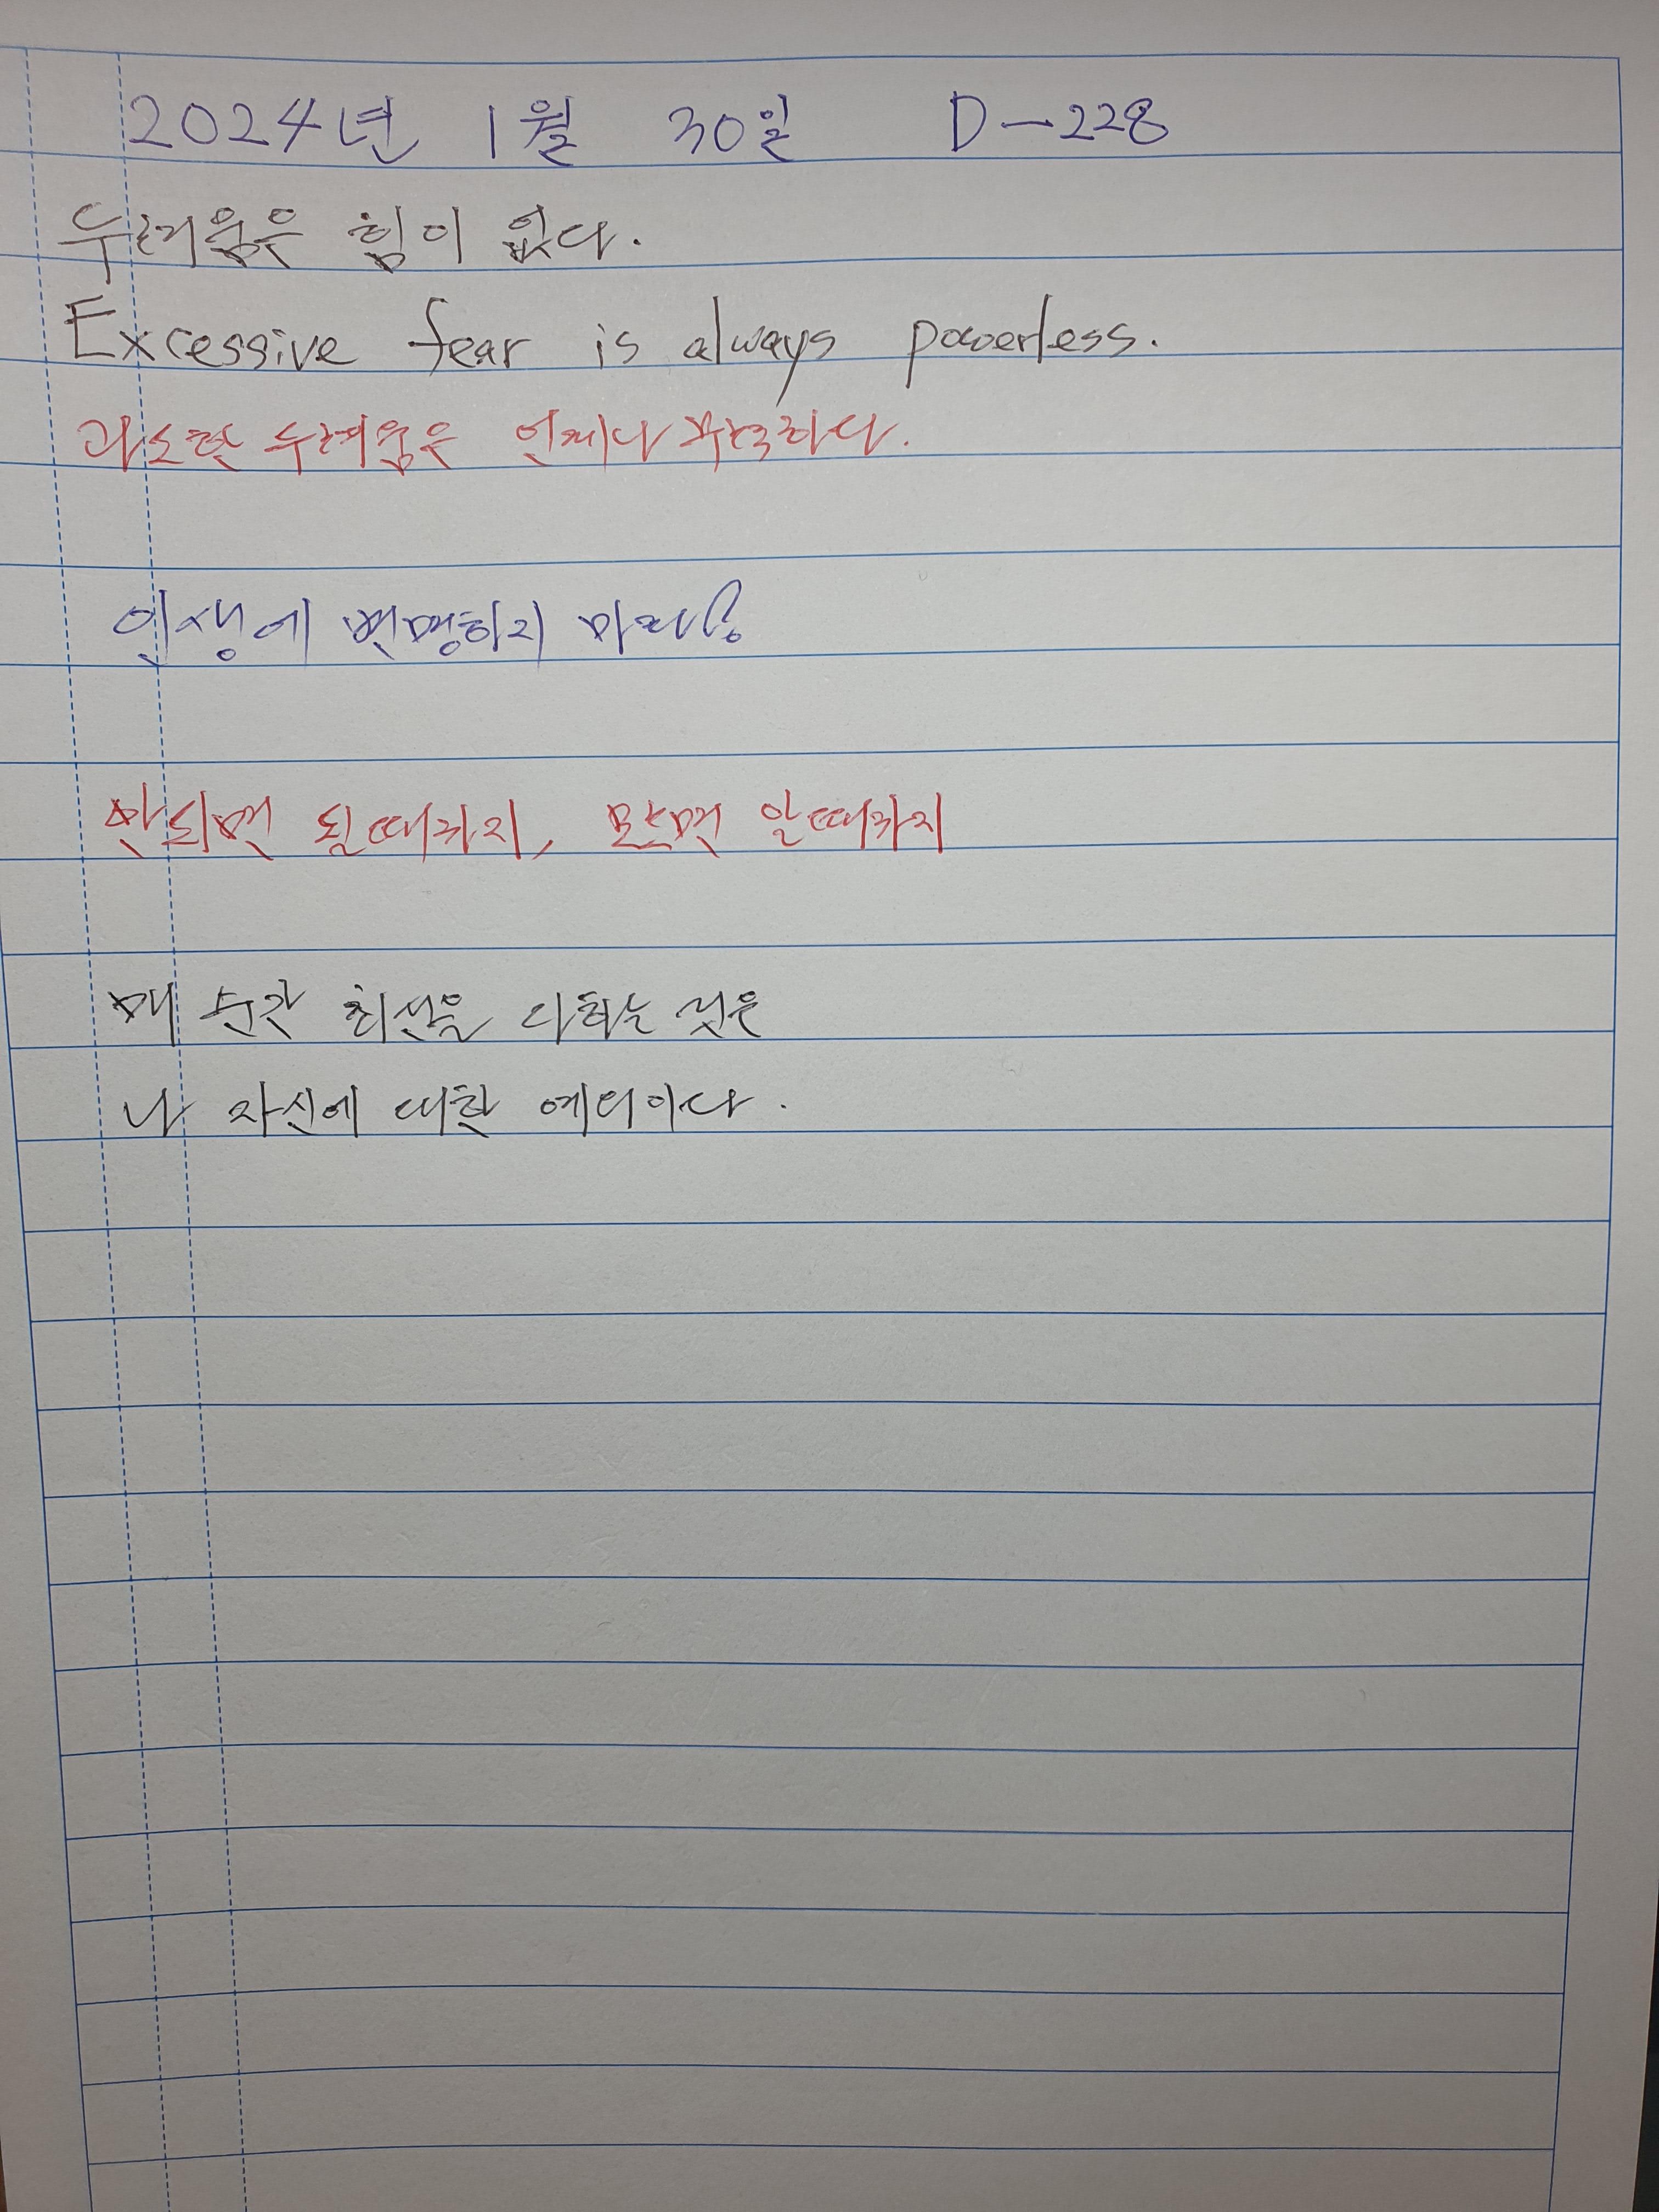 2024년 1월 30일 D-228
두려움은 힘이 없다.
Excessive fear is always powerless.
과도한 두려움은 언제나 무력하다.
인생에 변명하지 마라!
안되면 될때까지, 모르면 알때까지
매 순간 최선을 다하는 것은
나 자신에 대한 예의이다.